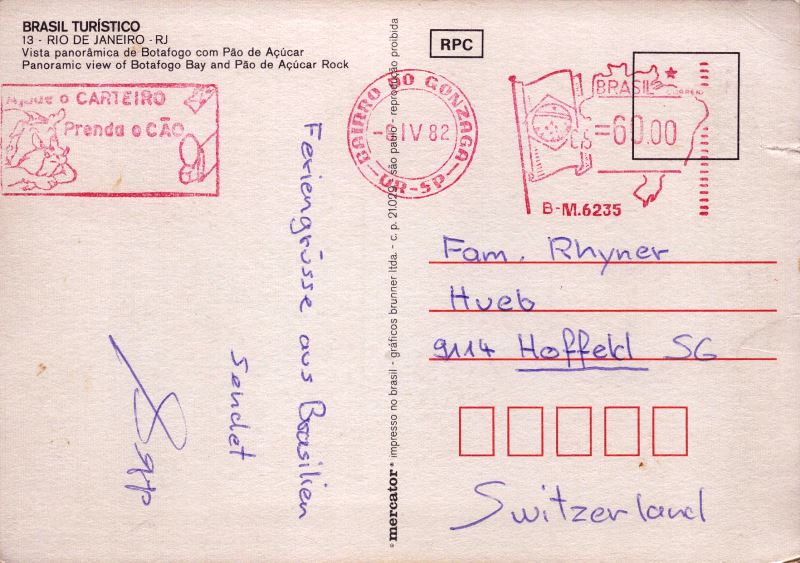 BRASIL TURÍSTICO
13 - RIO DE JANEIRO - RJ
Vista panorâmica de Botafogo com Pão de Açúcar
Panoramic view of Botafogo Bay and Pão de Açúcar Rock
RPC
Ajude o CARTEIRO
Prenda o CÃO
BAIRRO DO GONZAGA
IV 82
DR-SP
BRASIL
CORREIO
=60.00
B-M.6235
Feriengrüsse aus Brasilien
sendet
Fam. Rhyner
Hueb
9114 Hoffeld SG
Switzerland
mercator® impresso no brasil - gráficos brunner ltda. - c. p. 21.029 - são paulo - reprodução proibida